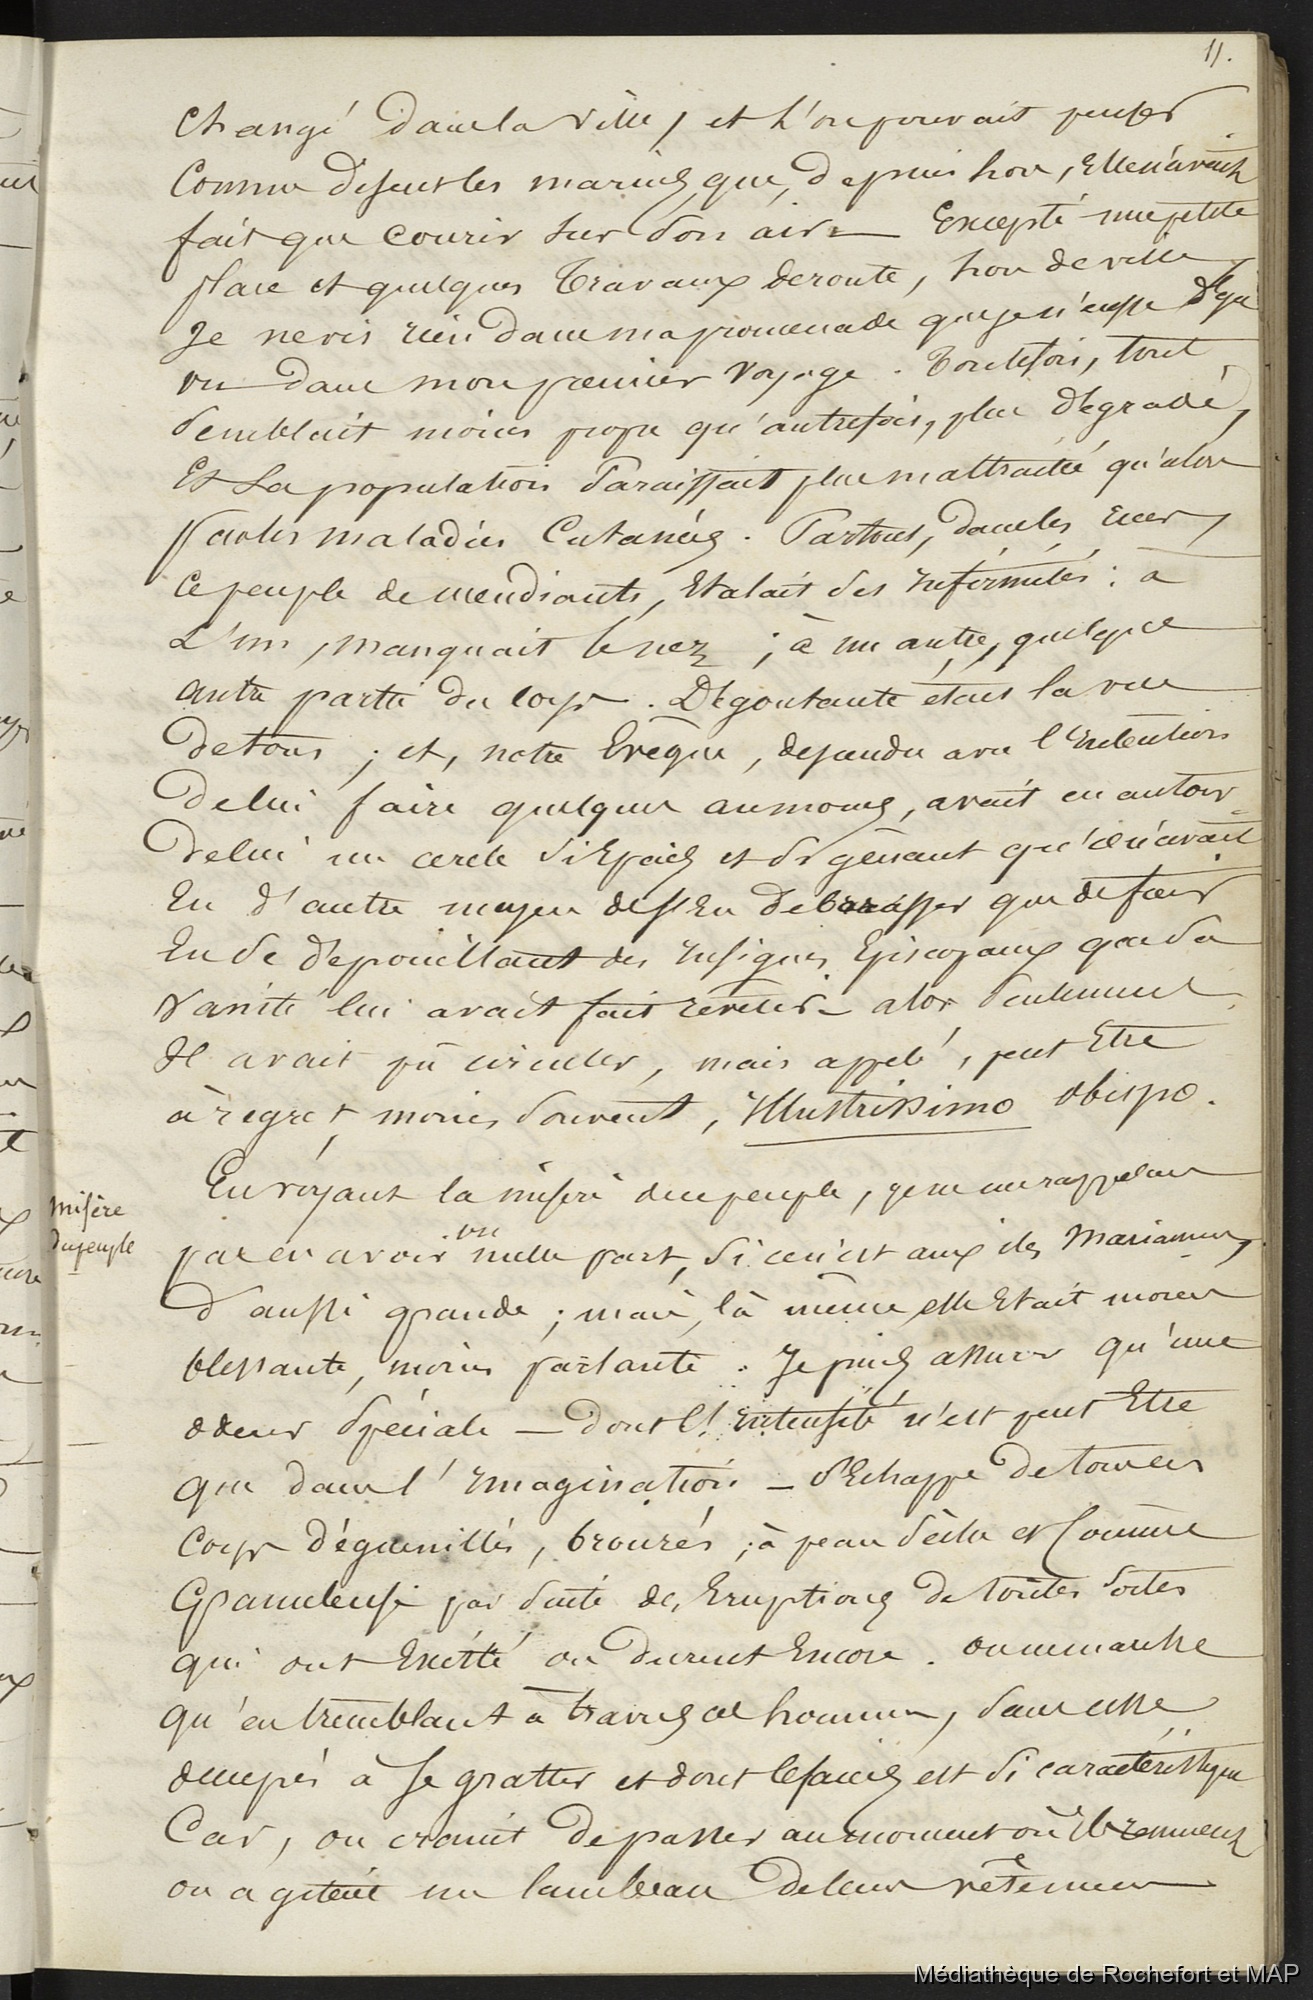 11.
changé dans la ville, et l'on pouvait penser
comme disent les marins, que, depuis lors, Elle n'avait
fait que courir sur son air — Excepté une petite
place et quelques travaux de route, hors de ville,
Je ne vis rien dans ma promenade que je n'eusse déjà
vu dans mon premier voyage. Toutefois, tout
semblait moins propre qu'autrefois, plus dégradé,
Et la population Paraissait plus maltraitée qu'alors
par les maladies Cutanées. Partout, dans les rues,
ce peuple de mendiants, Etalait ses Infirmités : à
L'un, manquait le nez ; à un autre, quelque
autre partie du corps. Dégoutante était la vue
de tous ; et, notre Evêque, descendu avec l'Intention
de lui faire quelques aumones, avait eu autour
de lui un cercle si Epais et si gênant qu'il n'avait
Eu d'autre moyen de s'En debarrasser que de fuir
En se dépouillant des Insignes Episcopaux que sa
vanité lui avait fait revêtir — alors seulement
Il avait pû circuler, mais appelé, peut Etre
à regret, moins souvent, Illustrissimo obispo.
Misère
du peuple
En voyant la misère du peuple, je ne me rappelais
pas en avoir vu nulle part, si ce n'est aux iles Mariannes,
d'aussi grande ; mais, là même elle Etait moins
blessante, moins parlante. Je puis assurer qu'une
odeur spéciale — dont l'Intensité n'est peut Etre
que dans l'Imagination — s'Echappe de tous ces
corps déguenillés, bronzés, à peau sèche et comme
Grameleuse par suite des Eruptions de toutes sortes
qui ont Existé ou durent Encore. on ne marche
qu'en tremblant à travers ces hommes, sans cesse
occupés à se gratter et dont le faciès est si caractéristique
Car, on craint de passer au moment où Ils remuent
ou agitent un lambeau de leurs vêtemens
Médiathèque de Rochefort et MAP